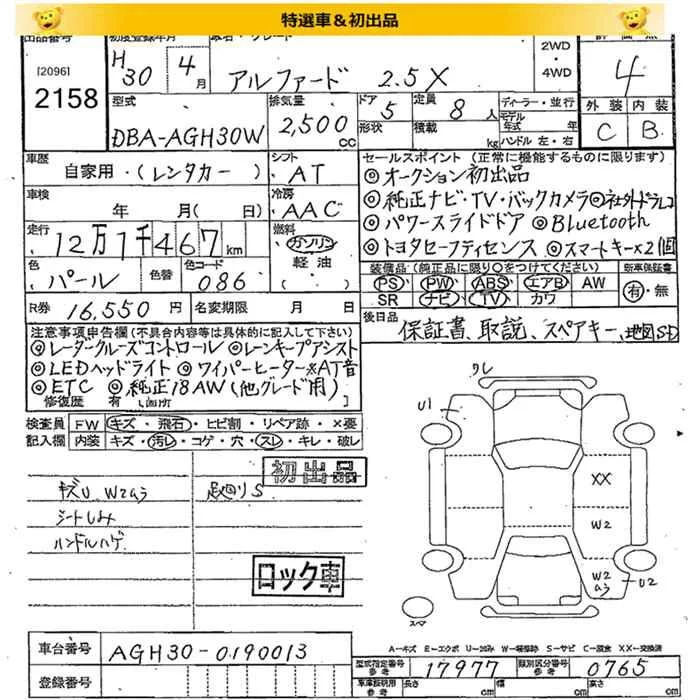 特選車&初出品
出品番号
[2096]
2158
初度登録年月
H30 4月
車名・グレード
アルファード 2.5X
2WD
・
4WD
評価点
4
外装 内装
C B
型式
DBA-AGH30W
排気量
2,500cc
ドア 5
形状
定員 8人
積載 kg
ディーラー・並行
モデル年式 年
ハンドル 左・右
車歴
自家用・(レンタカー)
シフト
AT
車検
年 月( 日)
冷房
AAC
走行
12万1千467km
燃料
ガソリン
軽油
色
パール
色替
色コード
086
R券 16,550円
名変期限 月 日
セールスポイント(正常に機能するものに限ります)
◎オークション初出品
◎純正ナビ・TV・バックカメラ◎社外ドラレコ
◎パワースライドドア ◎Bluetooth
◎トヨタセーフティセンス ◎スマートキー×2個
装備品(純正品に限り○をつけてください)
新車保証書
PS PW ABS エアB AW
有・無
SR ナビ TV カワ
後日品
保証書、取説、スペアキー、地図SD
注意事項申告欄(不具合内容等は具体的に記入して下さい)
◎レーダークルーズコントロール ◎レーンキープアシスト
◎LEDヘッドライト ◎ワイパーヒーター※AT音
◎ETC ◎純正18AW(他グレード用)
修復歴 有
検査員記入欄
FW キズ・飛石・ヒビ割・リペア跡・×要
内装 キズ・汚レ・コゲ・穴・スレ・キレ・破レ
初出品
キズU W2あう
足廻りS
シートしみ
ハンドルハゲ
ロック車
ワレ
U1
XX
W2
W2
あう
U2
スペア
A―キズ E―エクボ U―凹み W―補修跡 S―サビ C―腐食 XX―交換済
車台番号
AGH30-0190013
登録番号
型式指定番号
参考
17977
類別区分番号
参考
0765
車庫証明用
参考
長さ cm
幅 cm
高さ cm